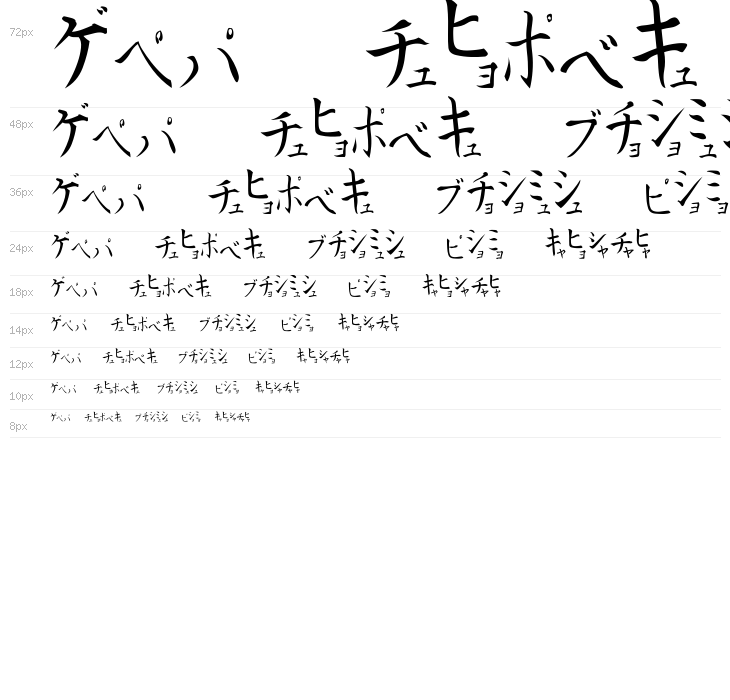 72px ゲペパ チュヒョポベキュ
48px ゲペパ チュヒョポベキュ ブチョショミュシ
36px ゲペパ チュヒョポベキュ ブチョショミュシュ ピショミョ
24px ゲペパ チュヒョポベキュ ブチョショミュシュ ピショミョ キャヒョシャチャヒャ
18px ゲペパ チュヒョポベキュ ブチョショミュシュ ピショミョ キャヒョシャチャヒャ
14px ゲペパ チュヒョポベキュ ブチョショミュシュ ピショミョ キャヒョシャチャヒャ
12px ゲペパ チュヒョポベキュ ブチョショミュシュ ピショミョ キャヒョシャチャヒャ
10px ゲペパ チュヒョポベキュ ブチョショミュシュ ピショミョ キャヒョシャチャヒャ
8px ゲペパ チュヒョポベキュ ブチョショミュシュ ピショミョ キャヒョシャチャヒャ